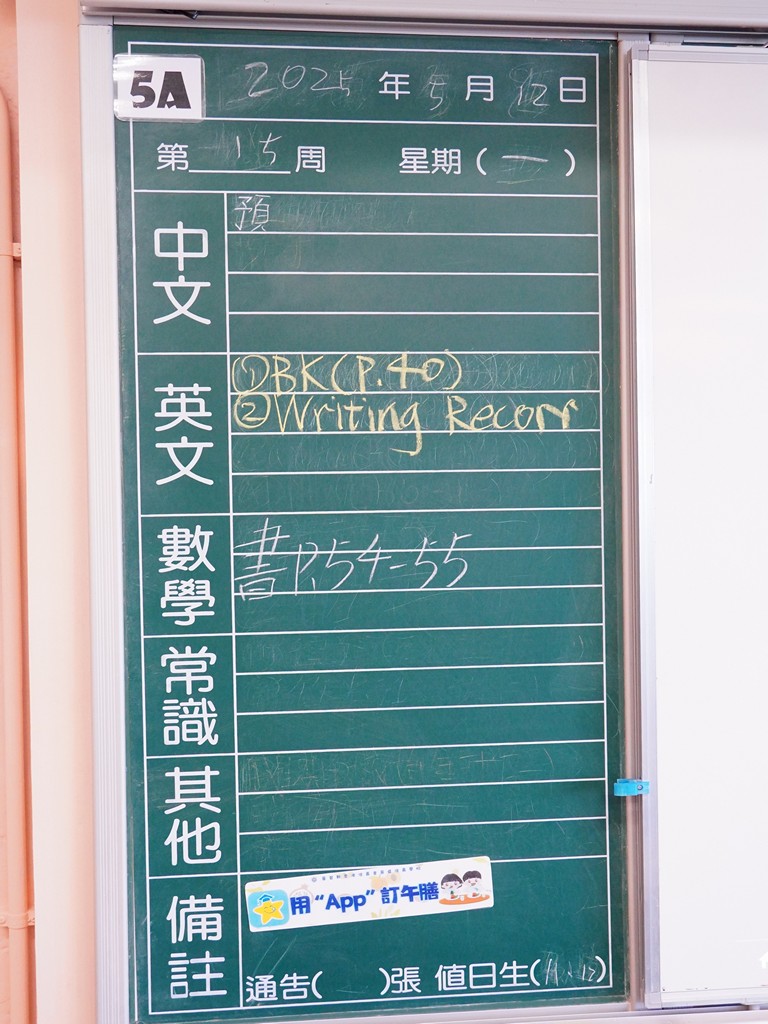 5A
2025 年 5 月 12 日
第 15 周 星期 (一)
中文
預
英文
①BK(P.40)
②Writing Recorr
數學
書P.54-55
常識
其他
備註
用“App”訂午膳
通告( )張 值日生( )